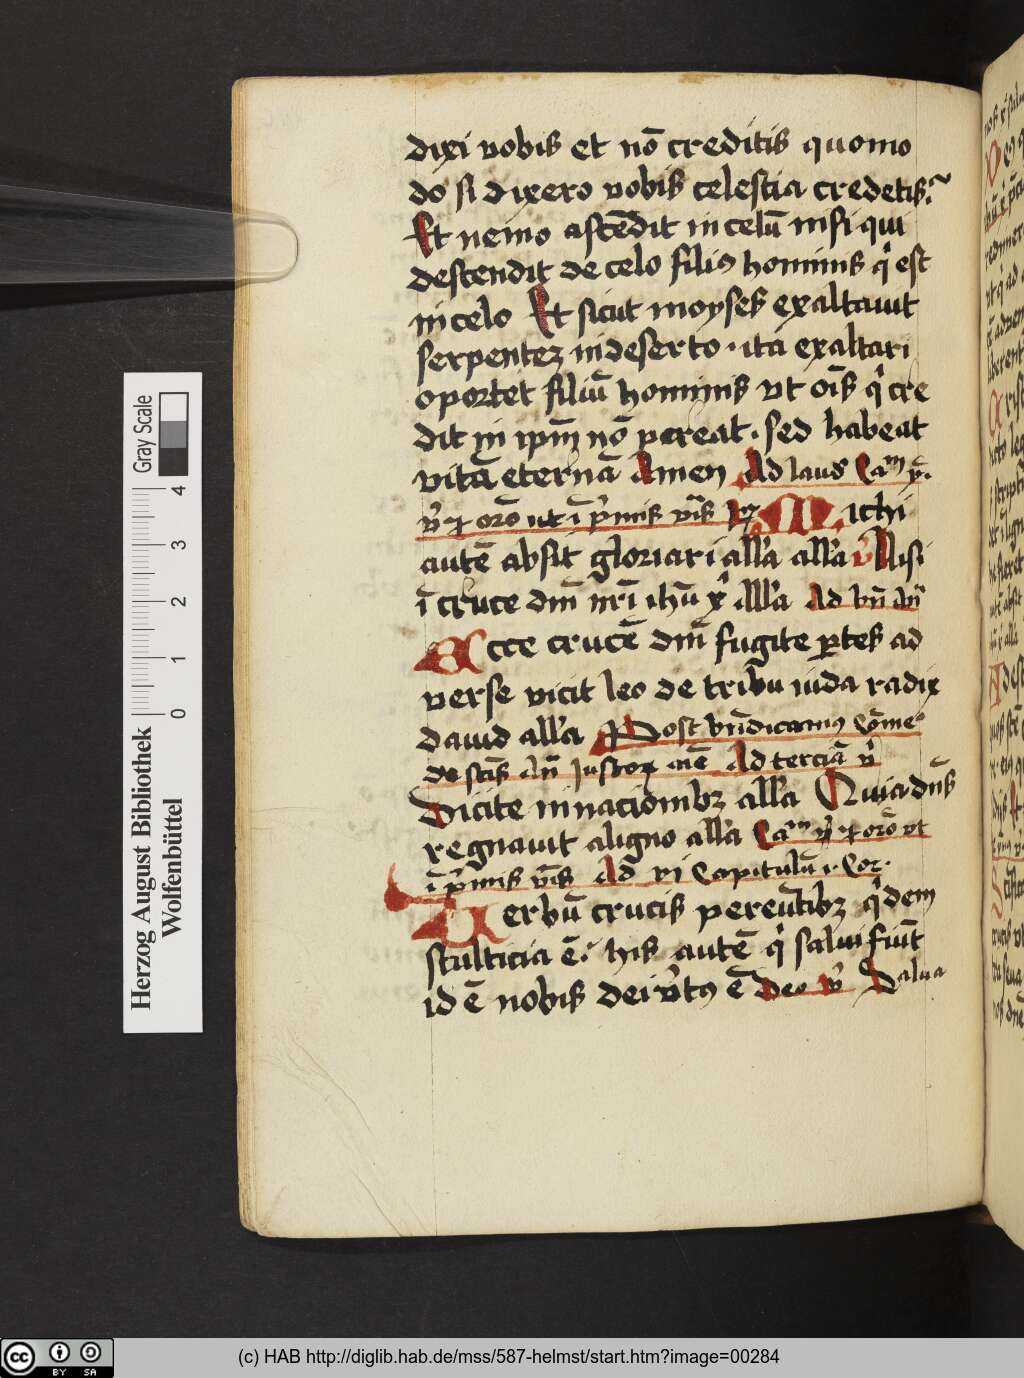 dixi vobis et nō creditis quomo
do si dixero vobis celestia credetis?
Et nemo ascēdit in celū nisi qui
descendit de celo filiꝰ hominis q̇ est
in celo Et sicut moyses exaltauit
serpentez in deserto · ita exaltari
oportet filiū hominis vt oīs q̇ cre
dit in ipm̄ nō pereat · sed habeat
vitā eternā Amen Ad laud' Caᵐ
⁊ orō ut ī p̄mis Michi
autē absit gloriari all'a all'a Nisi
ī cruce dn̄i nr̄i ihū all'a Ad
Ecce crucē dn̄i fugite ꝑtes ad
verse vicit leo de tribu iuda radix
dauid all'a Post
de Ad terciā
Dicite in nacionibꝫ all'a Quia dn̄s
regnauit a ligno all'a Caᵐ ⁊ orō vt
ī p̄mis Ad vi Capitulū i· Cor·
Verbū crucis pereūtibꝫ q̇dem
stulticia ē· his autē q̇ salui fiūt
id ē nobis dei v̇tꝰ ē Deo Salua
Herzog August Bibliothek
Wolfenbüttel
Gray Scale
0 1 2 3 4
cc BY SA
(c) HAB http://diglib.hab.de/mss/587-helmst/start.htm?image=00284